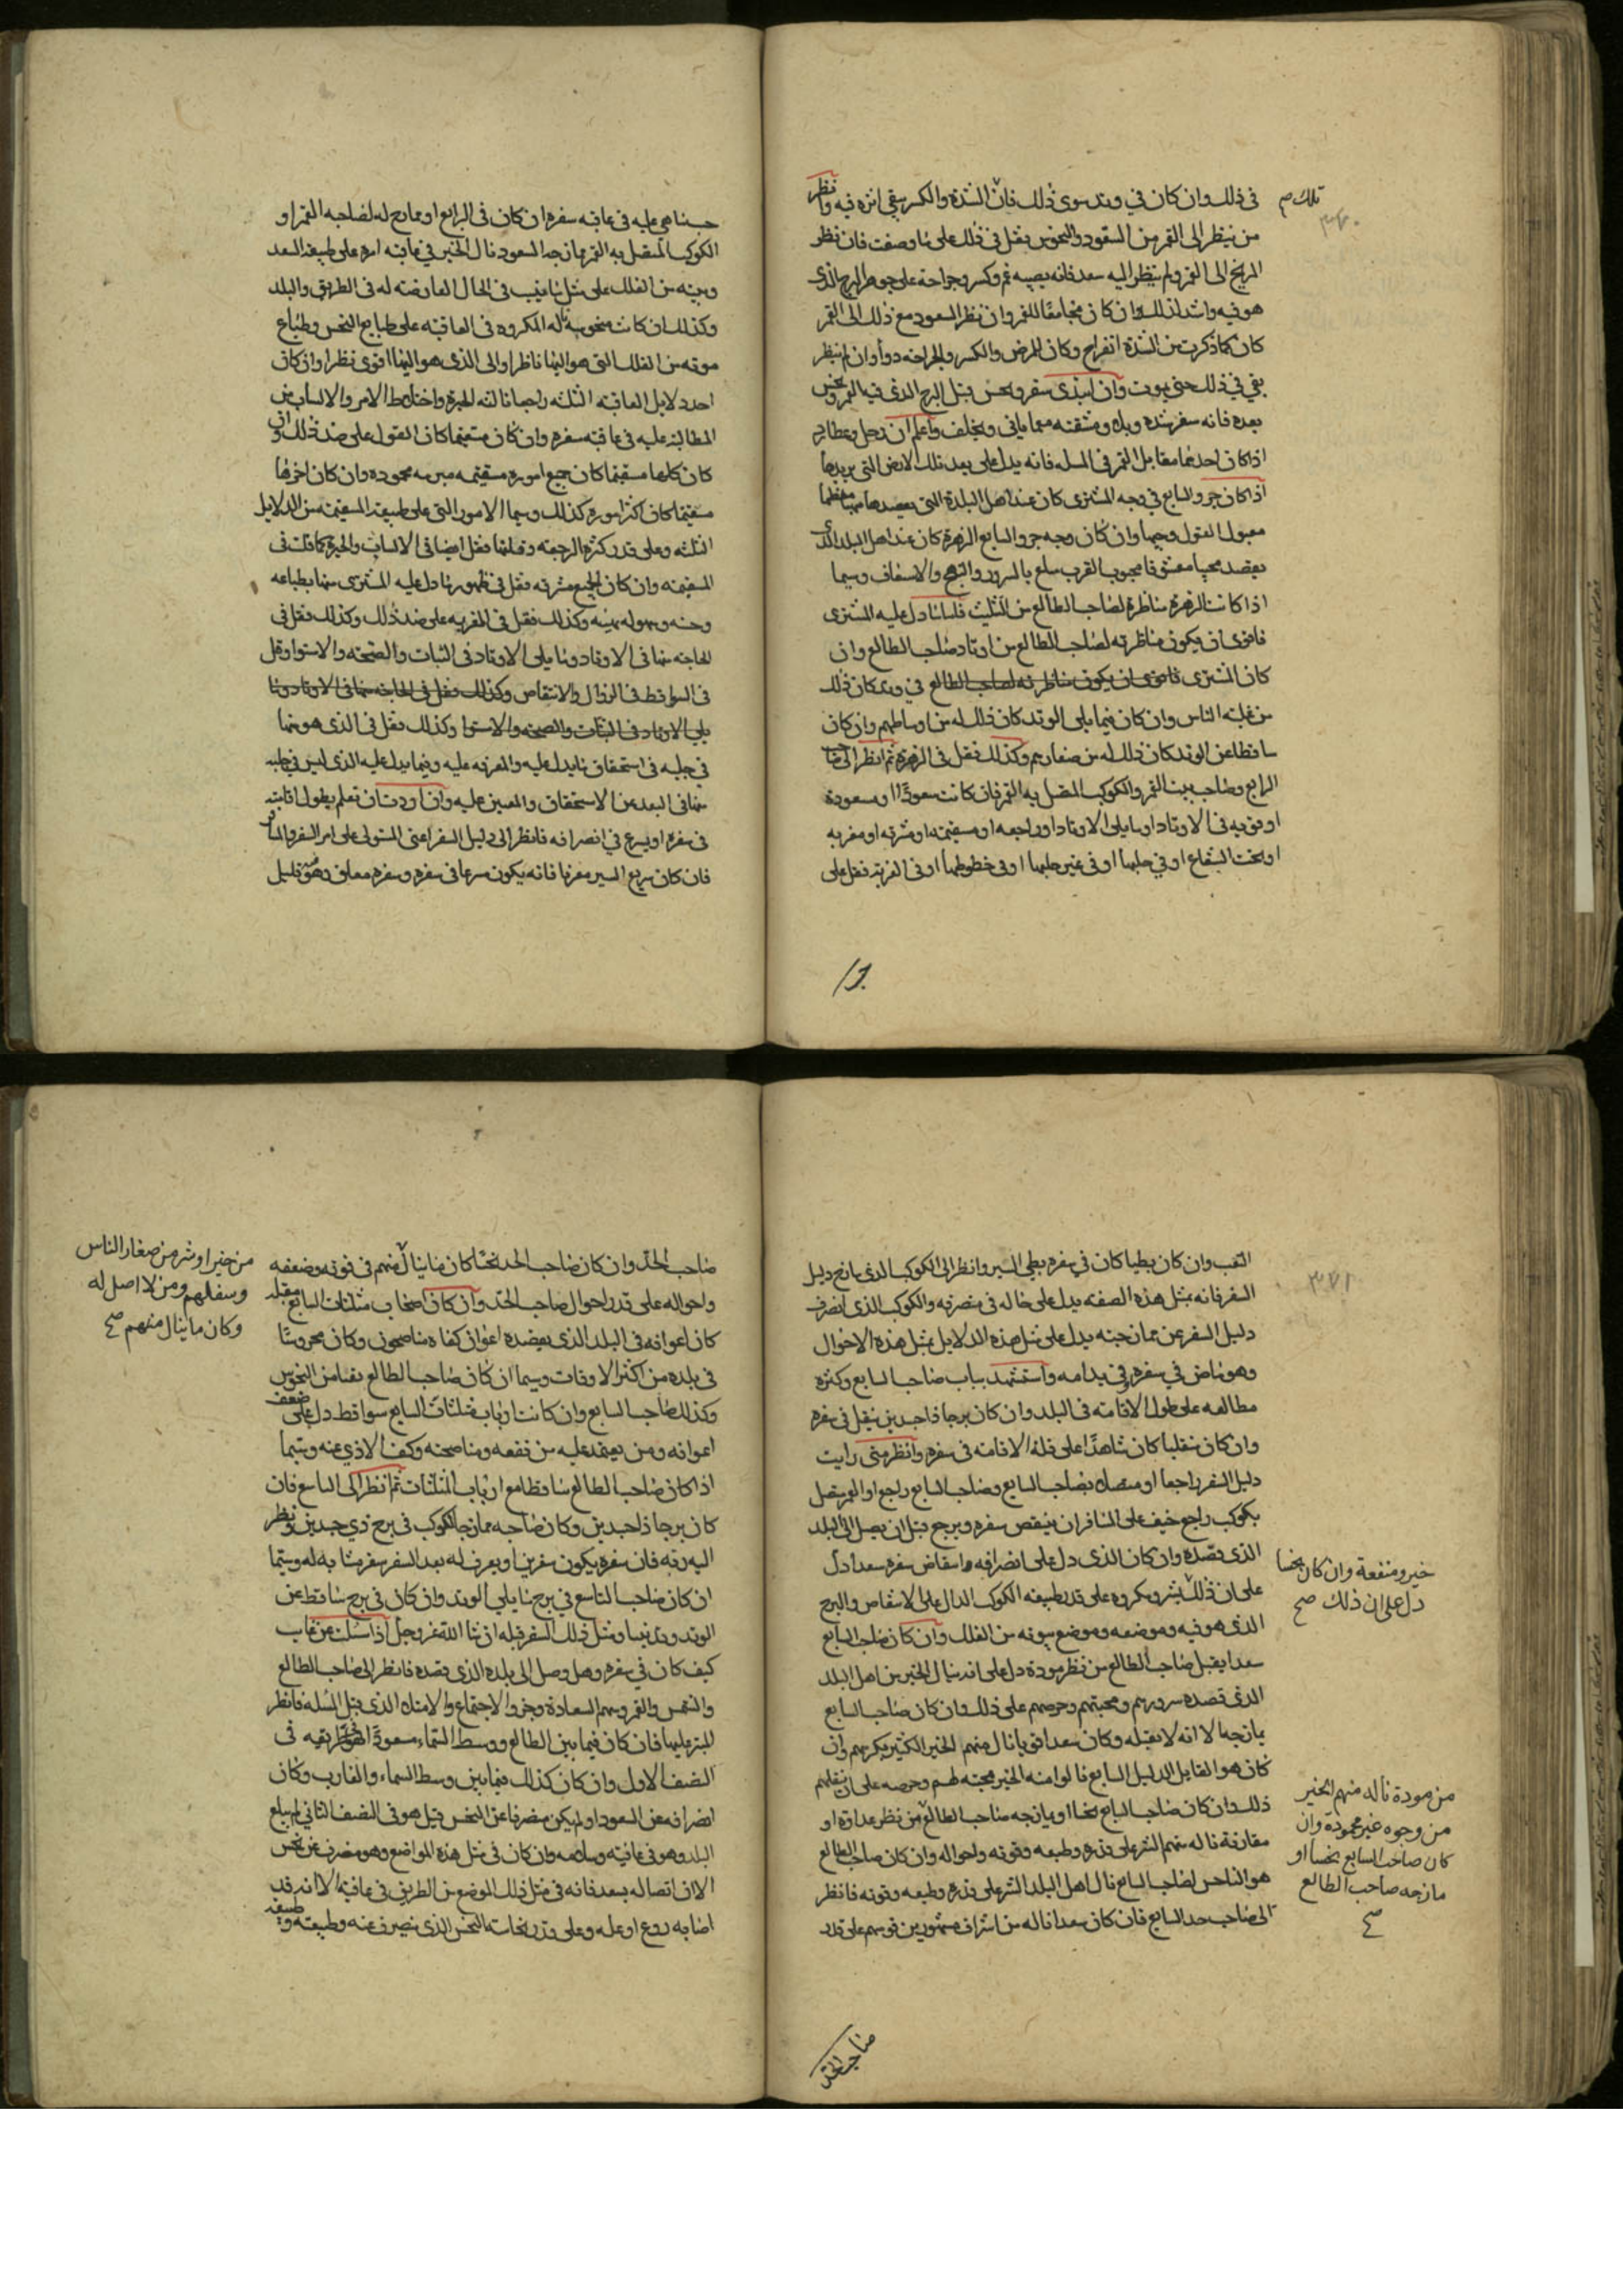 في ذلك وان كان في وتد سوى ذلك فان الشدة والكسر يبقى اثره فيه وانظر
تلك صح
٣٧٠
من ينظر الى القمر من السعود والنحوس فقل في ذلك على ما وصفت فان نظر
المريخ الى القمر ولم ينظر اليه سعد فانه يصيبه غم وكسر وجراحة على جوهر البرج الذى
هو فيه واشد لذلك ان كان مجامعا للقمر وان نظر السعود مع ذلك الى القمر
كان كما ذكرت من الشدة انفراج وكان للمرض والكسر والجراحه دوأ وان لم ينظر
بقي في ذلك حتى يموت وان ابتدى سفر ونحس قبل البرج الذي فيه القمر ونحس
بعده فانه سفر شده وبلا ومشقه مما ياتى ويخلف واعلم ان زحل وعطارد
اذا كان احدهما مقابل القمر فى المسله فانه يدل على بعد تلك الارض التى يريدها
اذا كان جزو السابع في وجه المشترى كان عند اهل البلدة التى يقصدها مهيبا معظما
مقبول القول وجيها وان كان وجه جزو السابع الزهرة كان عند اهل البلد الذى
يقصد محببا معشوقا محبوب القرب سلع بالسرور والبهج والاسعاف وسيما
اذا كانت الزهرة مناظرة لصاحب الطالع من التثليث فلما ما دل عليه المشترى
فاقوى ان يكون مناظرته لصاحب الطالع من اوتاد صاحب الطالع وان
كان المشترى فاقوى ان يكون مناظرته لصاحب الطالع في وتد كان ذلك
من علية الناس وان كان فيما يلى الوتد كان ذلك له من اوساطهم وان كان
ساقطا عن الوتد كان ذلك له من صغارهم وكذلك فقل فى الزهرة ثم انظر الى صاحب
الرابع وصاحب بيت القمر والكوكب المتصل به القمر فان كانت سعودا او مسعودة
او قويه فى الاوتاد او ما يلى الاوتاد او راجعه او مستقيمه او مشرقه او مغربه
او تحت الشعاع او في حلبها او فى غير حلبها او في خطوطها او فى الغربة فقل على
حسب ما هى عليه فى عاقبة سفره ان كان فى الرابع او ممازج له لصاحبه القمر او
الكوكب المتصل به القمر مازجه السعود نال الخير في عاقبه امره على طبيعة السعد
وبيته من الفلك على مثل ما يغيب فى الحال العارضه له فى الطريق والبلد
وكذلك ان كانت منحوسة ناله المكروه فى العاقبه على طبايع النحس وطباع
موقعه من الفلك التى هو اليها ناظرا والى الذى هو اليها اقوى نظرا وان كان
احد دلايل العاقبه الثلثه راجعا نالته الحيرة واختلاط الامر والالتباس من
المطالبة عليه فى عاقبة سفره وان كان مستقيما كان القول على ضد ذلك وان
كان كلها مستقيما كان جميع اموره مستقيمه مبرمه محموده وان كان اخرها
مستقيما كان اكثر اموره كذلك وسيما الامور التى على طبيعة المستقيمه من الدلايل
الثلثه وعلى قدر كثرة الرجعه وقلتها فقل ايضا فى الالتباس والحيرة كما قلت فى
المستقيمه وان كان الجميع مشرقه فقل فى ظهور ما دل عليه المشترى منها بطباعه
وكذلك فقل فى المغربه على ضد ذلك وكذلك فقل فى
الحاجته منها فى الاوتاد وما يلى الاوتاد فى الثبات والصحه والاستوا وقل
فى السواقط فى الزوال والانتقاص وكذلك فقل فى الحاجه منها فى الاوتاد وما
يلي الاوتاد فى الثبات والصحه والاستوا وكذلك فقل فى الذى هو منها
في حلبه فى استحقاق ما يدل عليه والمعرفه عليه وفيما يدل عليه الذى ليس في حلبه
منها فى البعد عن الاستحقاق والمعين عليه وان اردت ان تعلم بطول اقامته
فى سفره او يسرع في انصرافه فانظر الى دليل السفر اعنى المستولى على امر السفر والمسافر
فان كان سريع السير مغربا فانه يكون مسرعا فى سفره وسفره معاف وهو قليل
التعب وان كان بطيا كان في سفره بطي السير وانظر الى الكوكب الذى مازج دليل
٣٧١
السفر فانه بمثل هذه الصفه يدل على حاله فى منصرفه والكوكب الذى انصرف
دليل السفر عن ممازجته يدل على مثل هذه الدلايل بمثل هذه الاحوال
وهو ماض في سفره وفي بدامه واستشهد بباب صاحب السابع وكثره
مطالعه على طول الاقامته فى البلد وان كان برجا ذا جسدين ينقل فى سفره
وان كان منقلبا كان شاهدا على قلة الاقامته فى سفره وانظر متى رايت
دليل السفر راجعا او متصلا بصاحب السابع وصاحب السابع راجع او القمر متصل
بكوكب راجع خيف على المسافر ان ينتقص سفره ويرجع قبل ان يصل الى البلد
الذى قصده وان كان الذى دل على انصرافه وانتقاض سفره سعدا دل
خير ومنفعة وان كان نحسا
دل على ان ذلك صح
على ان ذلك بشر ومكروه على قدر طبيعه الكوكب الدال على الانتقاص والبرج
الذى هو فيه وموضعه وموضع بيوته من الفلك وان كان صاحب السابع
سعدا يقبل صاحب الطالع من نظر مودة دل على انه ينال الخير من اهل البلد
الذى قصده سرورهم ومحبتهم وحرصهم على ذلك وان كان صاحب السابع
يمازجه الا انه لا يقبله وكان سعدا قويا نال منهم الخير الكثير بكرههم وان
كان هو القابل الدليل السابع نالوا منه الخير بمحبته لهم وحرصه على ان ينيلهم
من مودة ناله منهم الخير
من وجوه غير محمودة وان
كان صاحب السابع نحسا او
مازجه صاحب الطالع
صح
ذلك وان كان صاحب السابع نحسا او يمازجه صاحب الطالع من نظر عداوة او
مقارنة ناله منهم الشر على قدره وطبعه وقوته واحواله وان كان صاحب الطالع
هو الناحس لصاحب السابع نال اهل البلد الشر على قدره وطبعه وقوته فانظر
الى صاحب حد السابع فان كان سعدا ناله من اشراف مشهورين قوسهم على قدر
صاحب الحد
صاحب الحد وان كان صاحب الحد نحسا كان ما ينال منهم فى قوته وضعفه
من خير او شر من صغار الناس
وسفلهم ومن لا اصل له
وكان ما ينال منهم صح
واحواله على قدر احوال صاحب الحد وان كان اصحاب مثلثات السابع مقبله
كان اعوانه فى البلد الذى يقصده اعوان كفاه مناصحون وكان محروسا
فى بلده من اكثر الاوقات وسيما ان كان صاحب الطالع نقيا من النحوس
وكذلك صاحب السابع وان كانت ارباب مثلثات السابع سواقط دل على ضعف
اعوانه ومن يعتمد عليه من نفعه ومناصحته وكف الاذى عنه وسيما
اذا كان صاحب الطالع ساقطا مع ارباب المثلثات ثم انظر الى التاسع فان
كان برجا ذا جسدين وكان صاحبه ممازجا لكوكب فى برج ذي جسدين ونظر
اليه ربه فان سفره يكون سفرين او يعرض له بعد السفر سفر متشابه له وسيما
ان كان صاحب التاسع في برج ما يلي الوتد وان كان في برج ساقط عن
الوتد ومثل ذلك السفر قبله ان شا الله عز وجل اذا سئلت عن غايب
كيف كان في سفره وهل وصل الى بلده الذى قصده فانظر الى صاحب الطالع
والشمس والقمر وسهم السعادة وجزو الاجتماع والامتلا الذى قبل المسله فانظر
المبتز عليها فان كان فيما بين الطالع ووسط السماء مسعودا فهو فى طريقه فى
النصف الاول وان كان كذلك فيما بين وسط السماء والغارب وكان
انصرافه عن السعود او لم يكن منصرفا عن النحس قيل هو فى النصف الثاني لم يبلغ
البلد وهو فى عافيه وسلامه وان كان فى مثل هذه المواضع وهو منصرف عن نحس
الا ان اتصاله بسعد فانه فى مثل ذلك الموضع من الطريق فى عافية الا انه قد
اصابه روع او عله وعلى قدر نحاسة النحس الذى ينصرف عنه وطبيعته